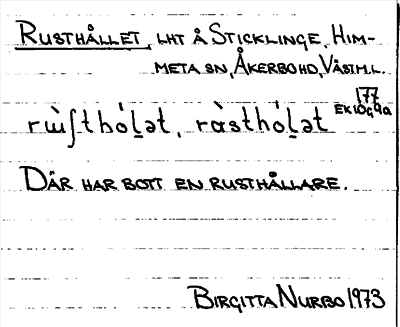 RUSTHÅLLET, LHT Å STICKLINGE, HIM-
META SN, ÅKERBO HD, VÄSTM.L.
77
EK 10G9a
rɯ̀ʃthó̱lət, ràsthó̱lət
DÄR HAR BOTT EN RUSTHÅLLARE.
BIRGITTA NURBO 1973